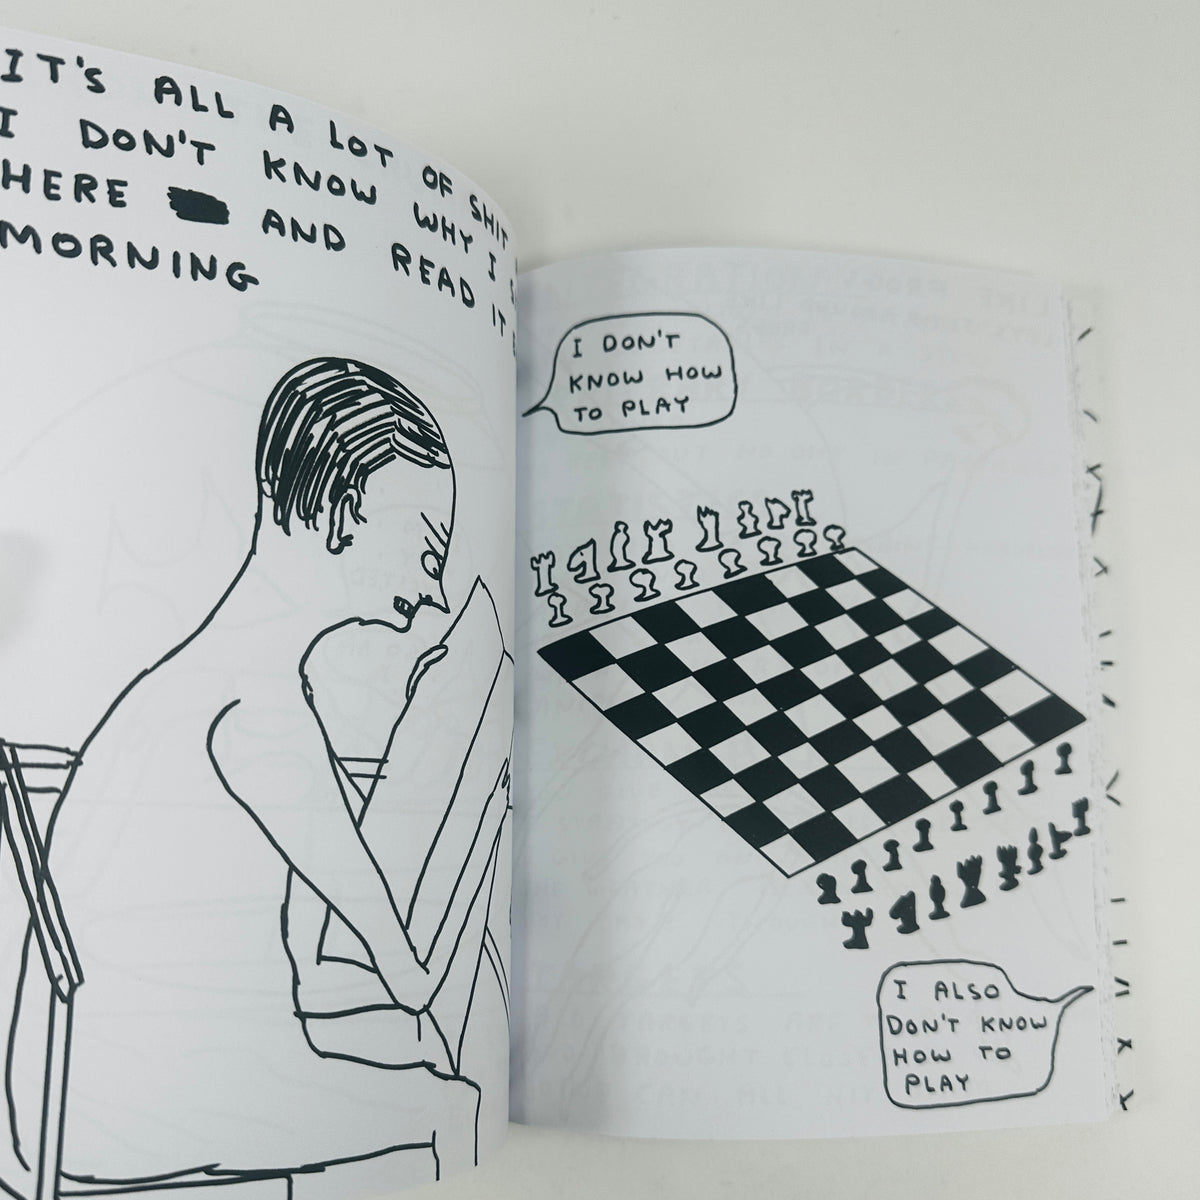 IT'S ALL A LOT OF SHIT
I DON'T KNOW WHY I
HERE AND READ IT
MORNING
I DON'T
KNOW HOW
TO PLAY
I ALSO
DON'T KNOW
HOW TO
PLAY